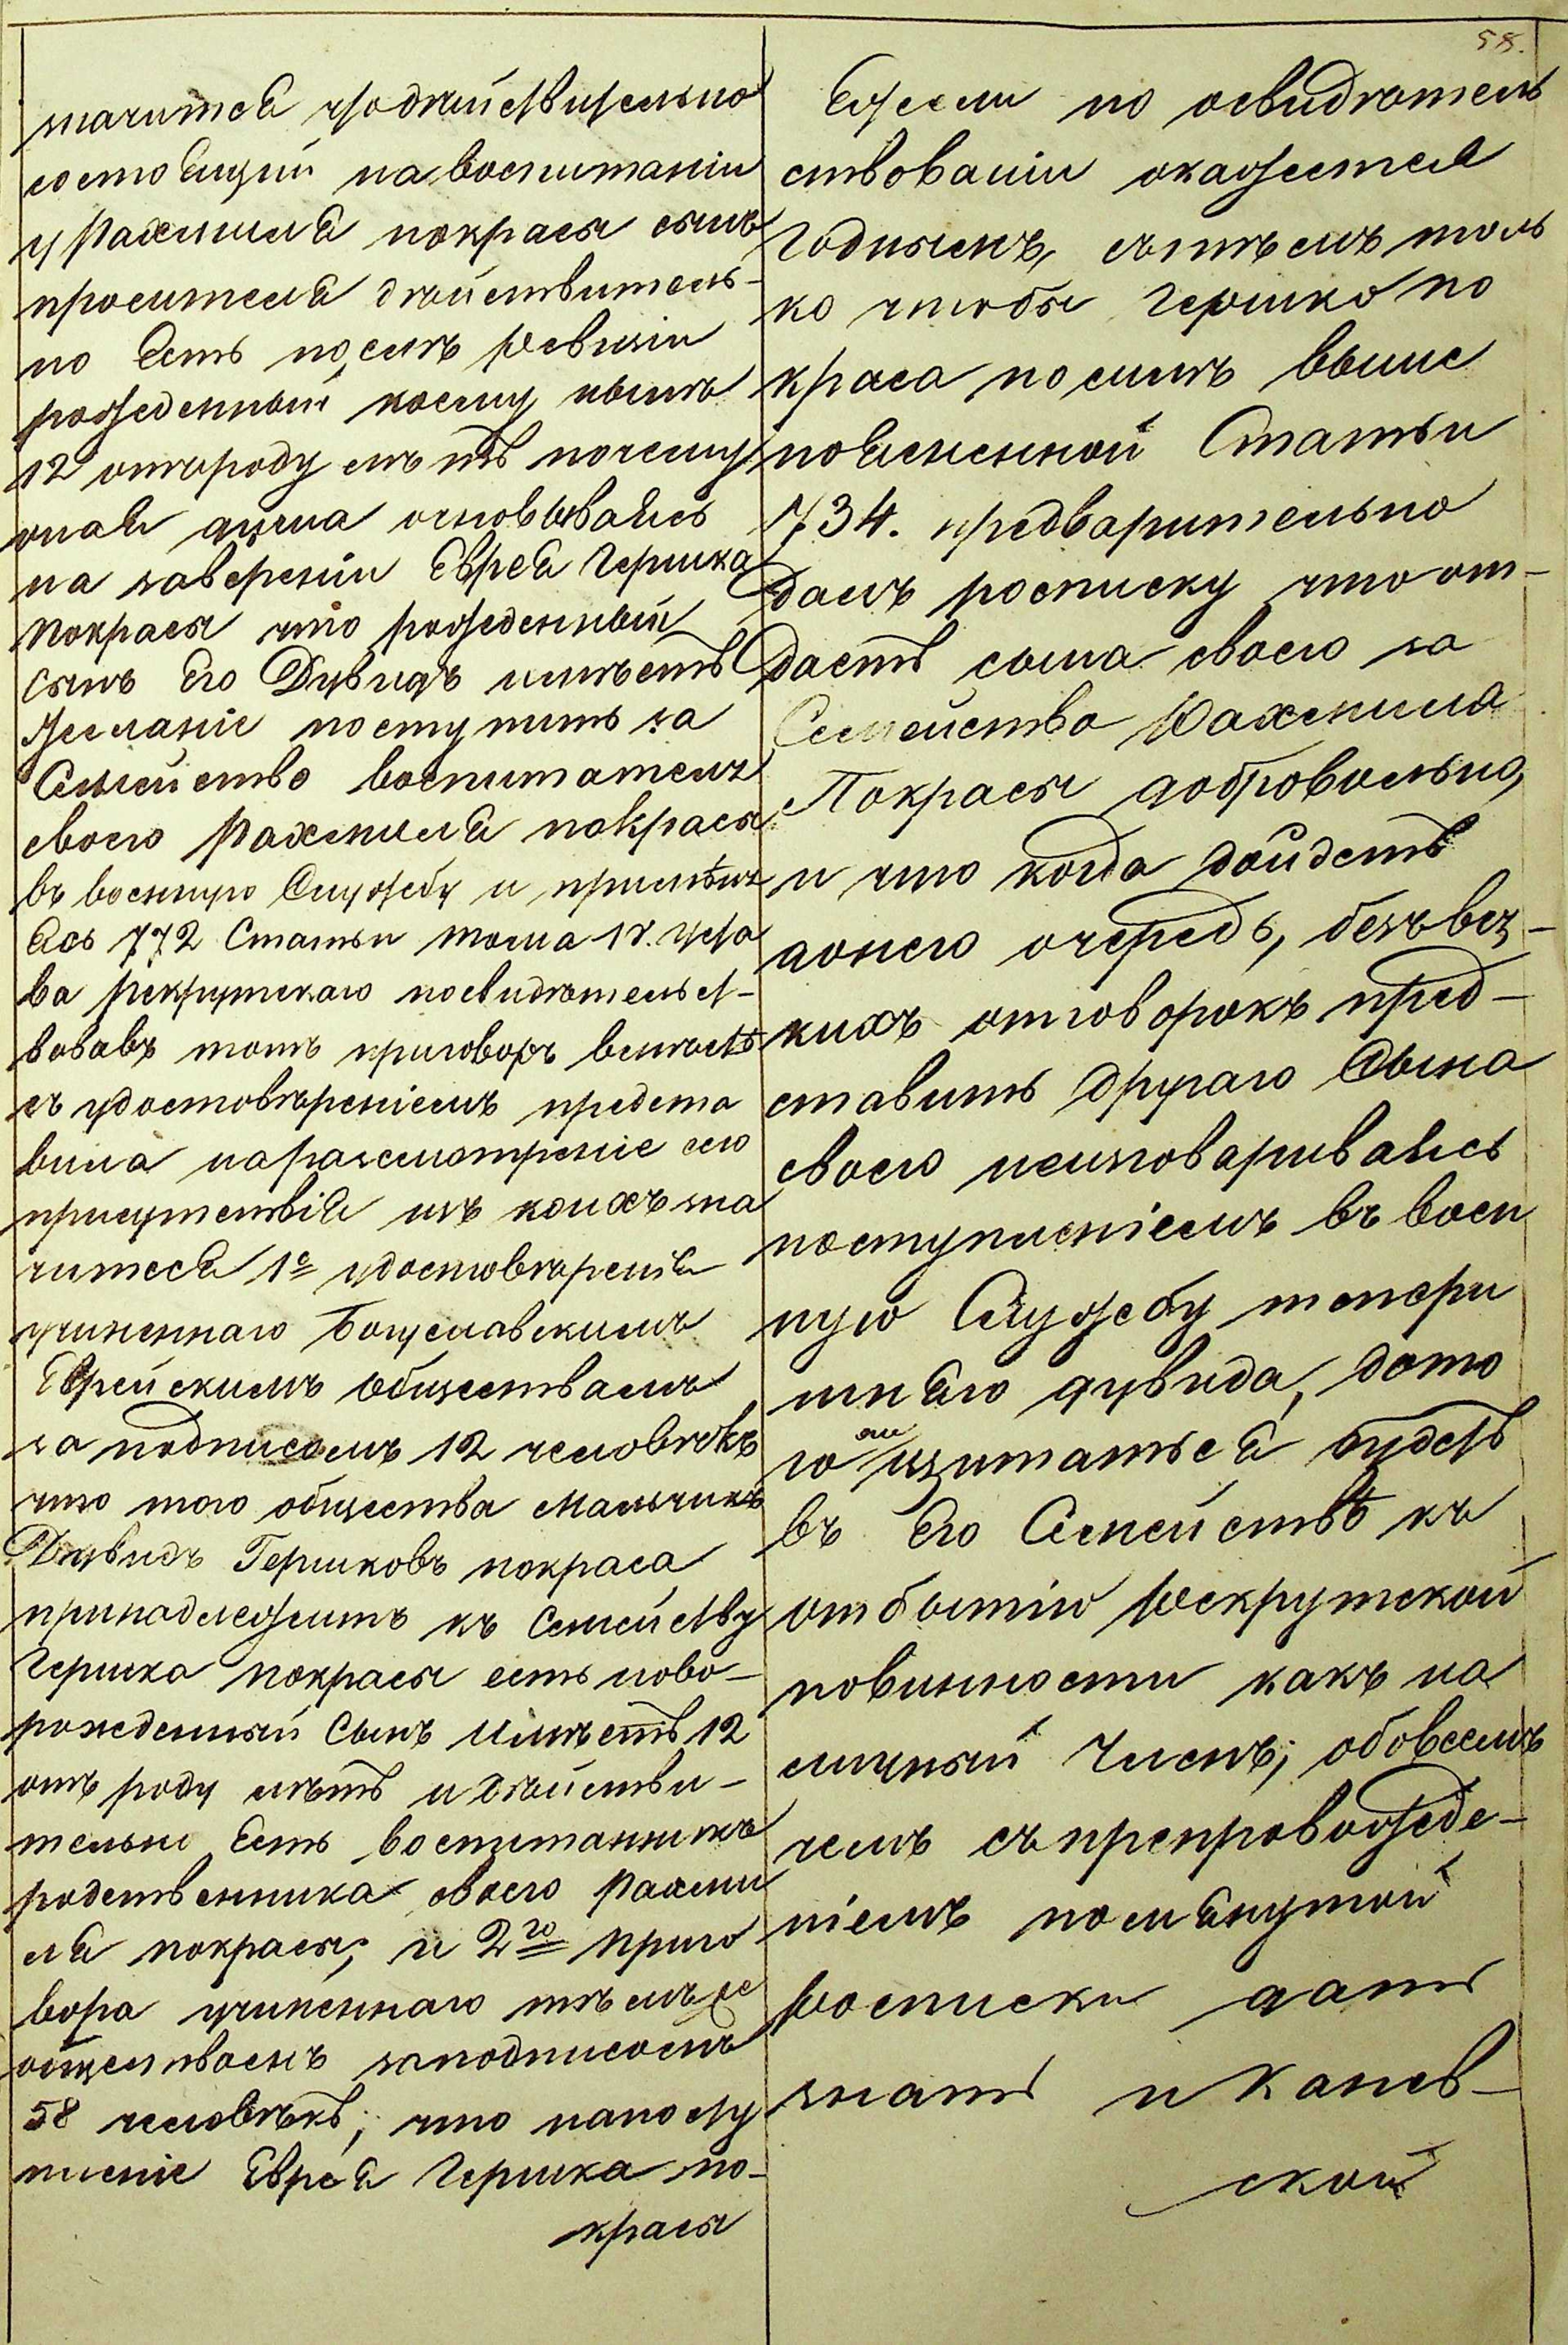 значится что действительно
состоящий на воспитаніи
у Рахмиля покрасы сынъ
просителя действитель-
но есть послѣ ревизіи
рожденный коему нынѣ
12 отъ роду лѣтъ почему
оная дума основываясь
на заверении Еврея Гершка
покрасы что рожденный
сынъ Его Дувидъ имѣетъ
желаніе поступить за
Семейство воспитателя
своего Рахмиля покрасы
въ военную Службу и примѣня
ясь 772 Статьи тома 1г. уста
ва рекрутскаго посвидѣтельст-
вовавъ тотъ приговоръ вместѣ
съ удостовѣреніемъ предста
вила на разсмотреніе сего
присутствія изъ коихъ зна
чится 1е удостовѣренія
учиненнаго Богуславскимъ
Еврейскимъ обществомъ
за подписомъ 12 человѣкъ
что того общества мальчикъ
Дувидъ Гершковъ покраса
принадлежитъ къ Семейству
Гершка покрасы есть ново-
рожденный Сынъ имѣетъ 12
отъ роду лѣтъ и дѣйстви-
тельно Есть воспитанникъ
родственника своего Рахми
ля покрасы; и 2го приго
вора учиненнаго тѣмъ же
обществомъ за подписомъ
58 человѣкъ; что на посту
пленіе Еврея Гершка по-
красы
58.
Ежели по освидѣтель
ствованіи окажется
годнымъ, съ тѣмъ толь
ко чтобы Гершко по
краса по силѣ выше
поясненной Статьи
734. предварительно
далъ росписку что от-
дастъ сына своего за
Семейство Рахмиля
Покрасы добровольно,
и что когда дойдетъ
донего очередь, безъ вся-
кихъ отговорокъ пред-
ставитъ другаго Сына
своего неизговариваясь
поступленіемъ въ воен
ную Службу тепери
шняго дувида, дото
го ли щитаться будетъ
въ Его Семействѣ къ
отбытію рекрутской
повинности какъ на
личный Членъ; обовсемъ
чемъ съ препровожде-
ніемъ помянутой
росписки дать
знать и канев-
ской